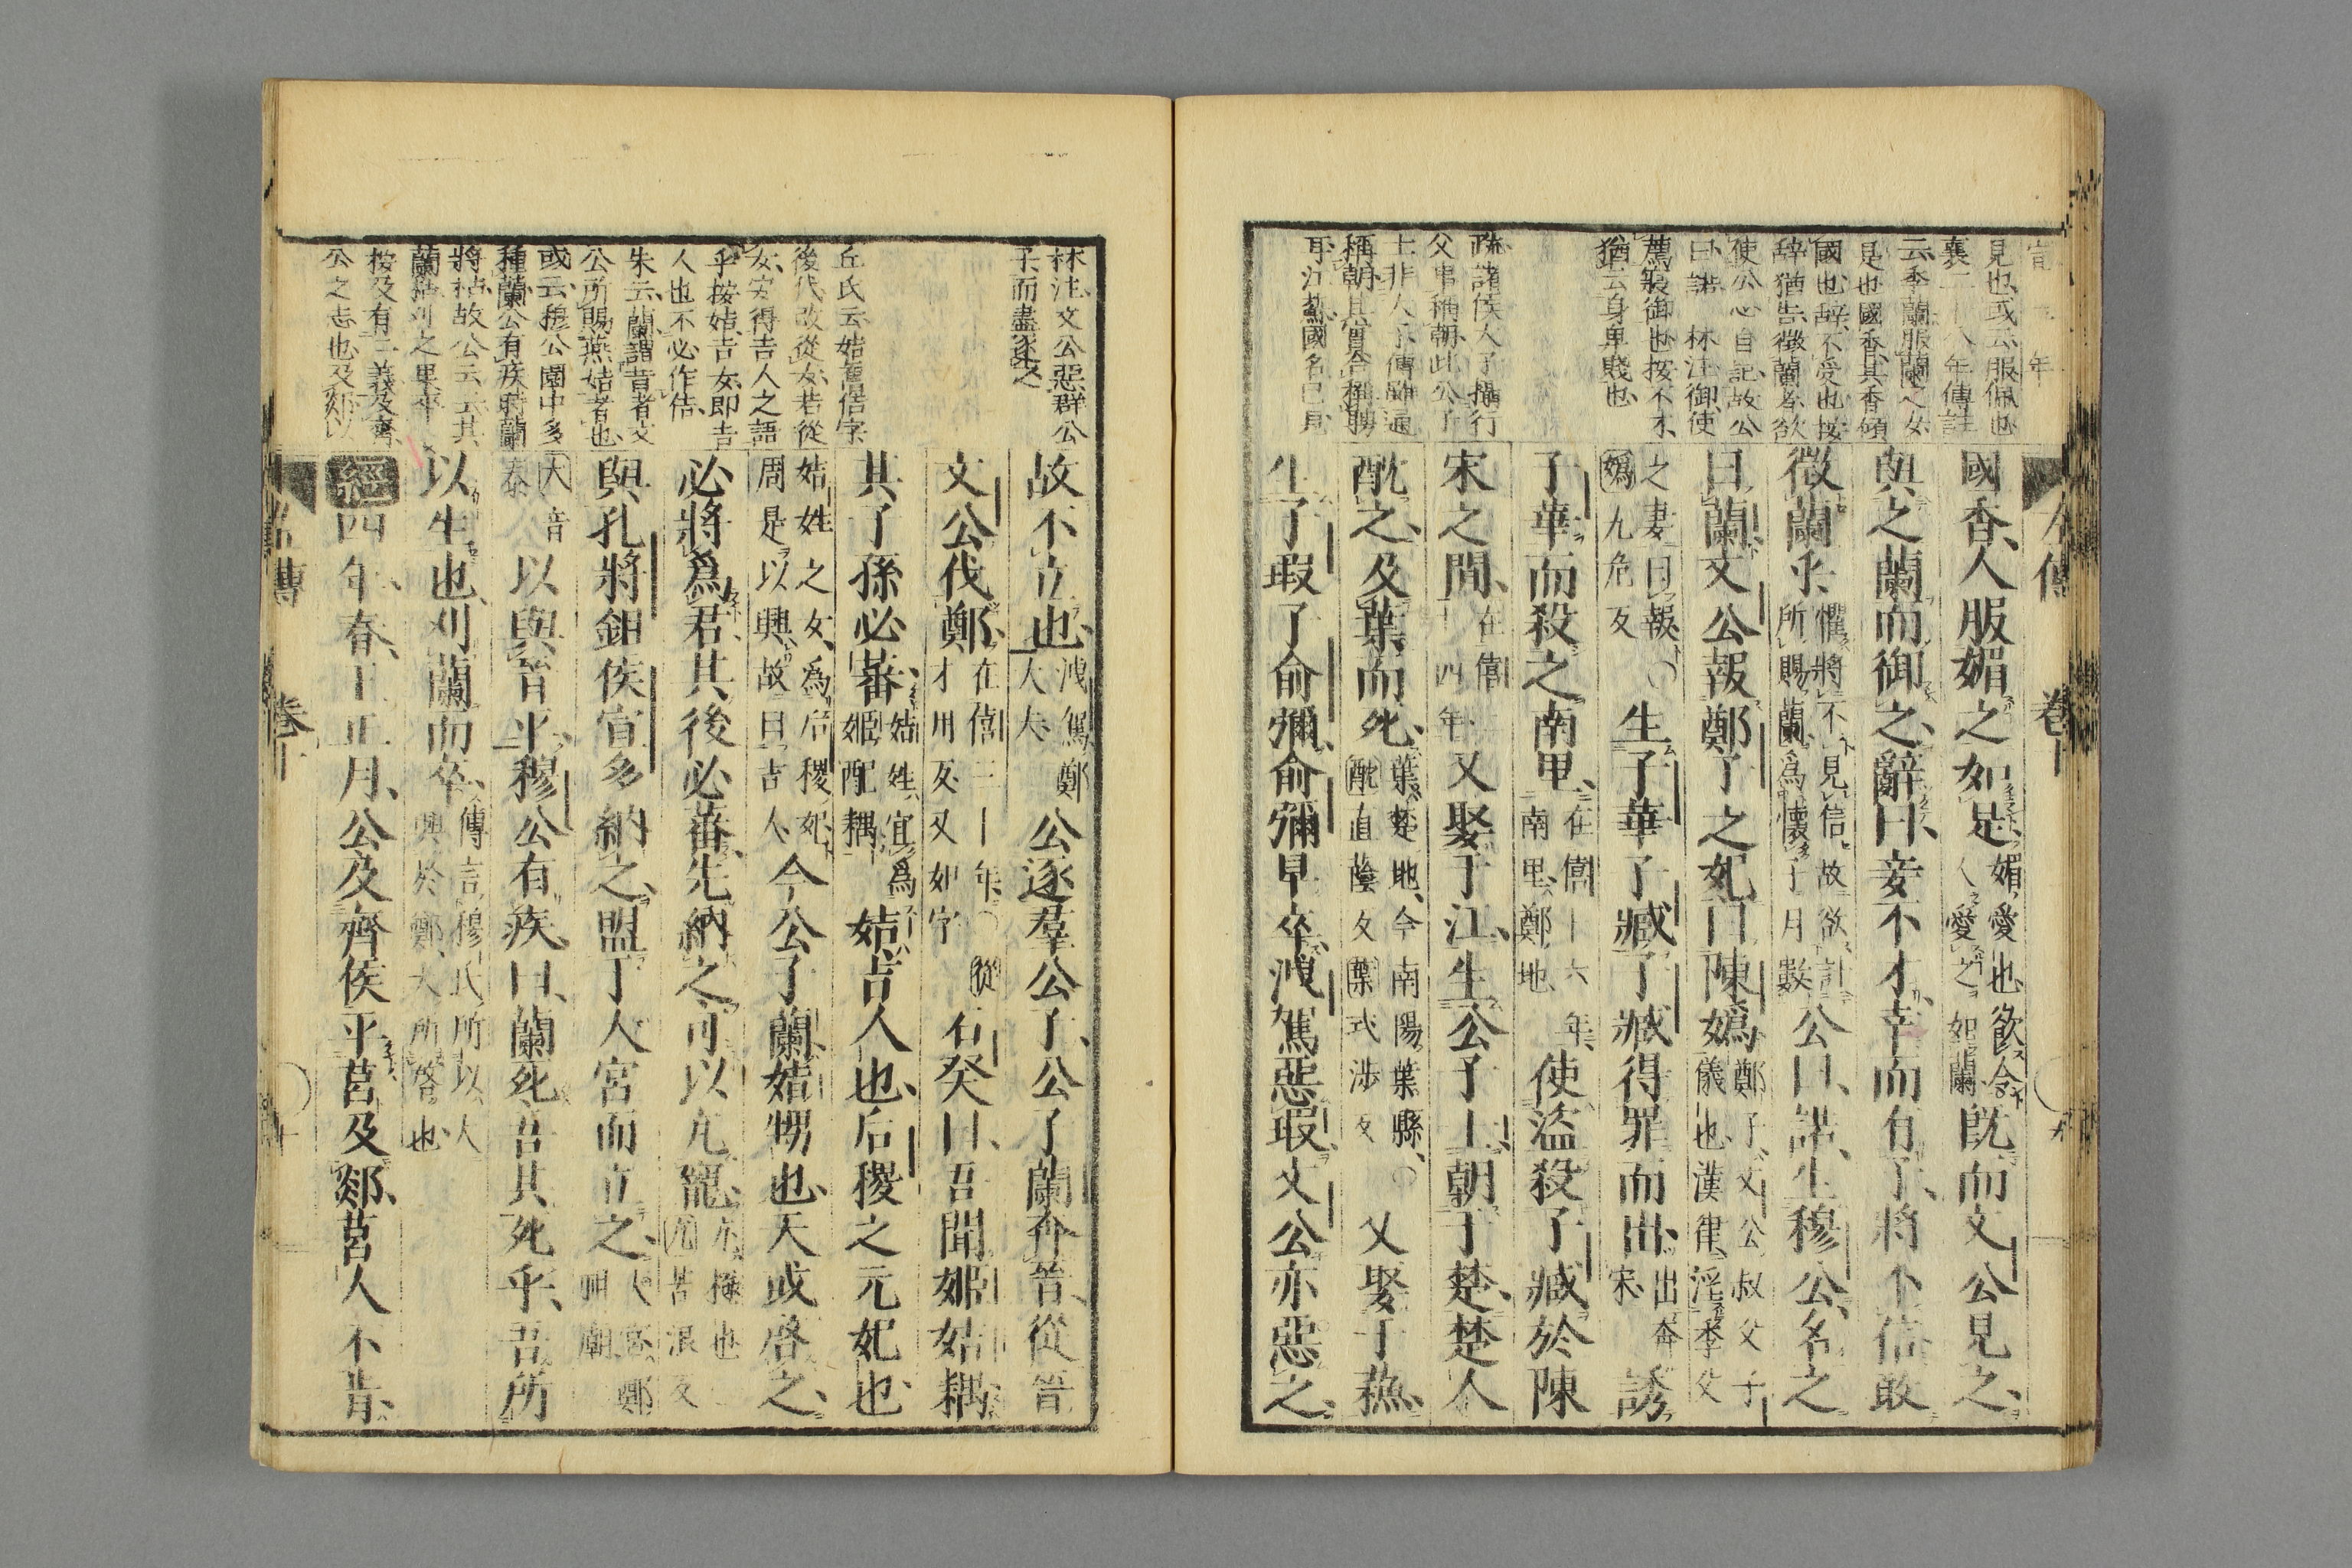 宣 年
見也或云服佩也
襄二十八年傳註
云季蘭服蘭之女
是也國香其香傾
國也辭不受也按
辭猶告徵蘭者欲
使公心自記故公
曰諾 林注御使
薦裝御也按不才
猶云身卑賤也
疏諸侯大子攝行
父事稱朝此公子
士非大子傳雖通
稱朝其實合稱聘
耳江蘇國名已見
左傳 卷十
國香人服媚之如是媚愛也欲令人愛之如蘭既而文公見之
與之蘭而御之辭曰妾不才幸而有子將不信敢
徵蘭乎懼將不見信故欲計所賜蘭爲懷子月數公曰諾生穆公名之
曰蘭文公報鄭子之妃曰陳嬀鄭子文公叔父子儀也漢律淫季父
之妻曰報○嬀九危反生子華子臧子臧得罪而出出奔宋誘
子華而殺之南里在僖十六年南里鄭地使盜殺子臧於陳
宋之間在僖二十四年又娶于江生公子士朝于楚楚人
酖之及葉而死葉楚地今南陽葉縣○酖直蔭反葉式涉反又娶于蘇
生子瑕子俞彌俞彌早卒洩駕惡瑕文公亦惡之
林注文公惡群公
子而盡逐之
丘氏云姞舊佶字
後代改從女若從
女安得吉人之語
乎按姞吉女即吉
人也不必作佶
朱云蘭謂昔者文
公所賜燕姞者也
或云穆公園中多
種蘭公有疾時蘭
將枯故公云云其
蘭枯刈之果卒
按及有二義及齊
公之志也及郯以
故不立也洩駕鄭大夫公逐羣公子公子蘭奔晉從晉
文公伐鄭在僖三十年○從才用反又如字石癸曰吾聞姬姞耦
其子孫必蕃姞姓宜爲姬配耦姞吉人也后稷之元妃也
姞姓之女爲后稷妃周是以興故曰吉人今公子蘭姞甥也天或啓之
必將爲君其後必蕃先納之可以亢寵亢極也亢苦浪反
與孔將鉏侯宣多納之盟于大宮而立之大宮鄭祖廟
大音泰以與晉平穆公有疾曰蘭死吾其死乎吾所
以生也刈蘭而卒傳言穆氏所以大興於鄭天所啓也
經四年春王正月公及齊侯平莒及郯莒人不肯
左傳 卷十